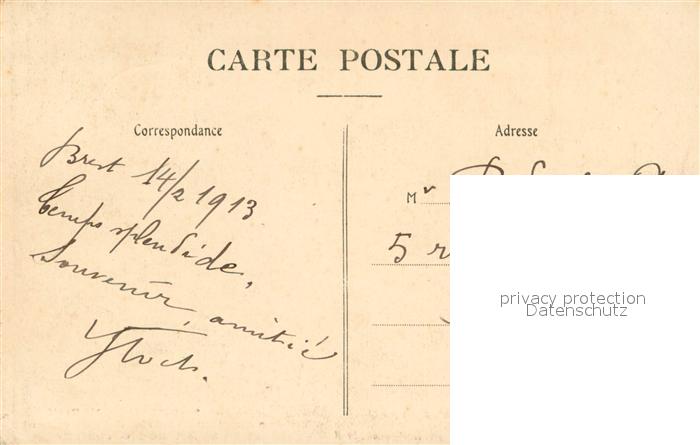 CARTE POSTALE
Correspondance
Adresse
Brest 14/2 1913
temps splendide,
Souvenir, amitié
Mr
5 r
privacy protection
Datenschutz